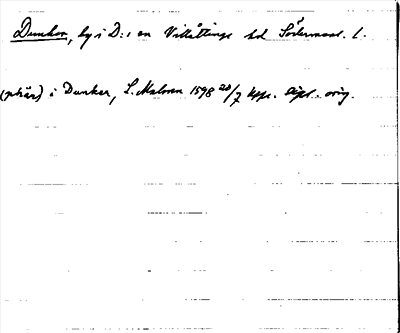 Dunker, by i D:s sn Villåttinge hd Södermanl. l.
(präst) i Dunker, L. Malmen 1598 20/7 Upps. dipl. orig.